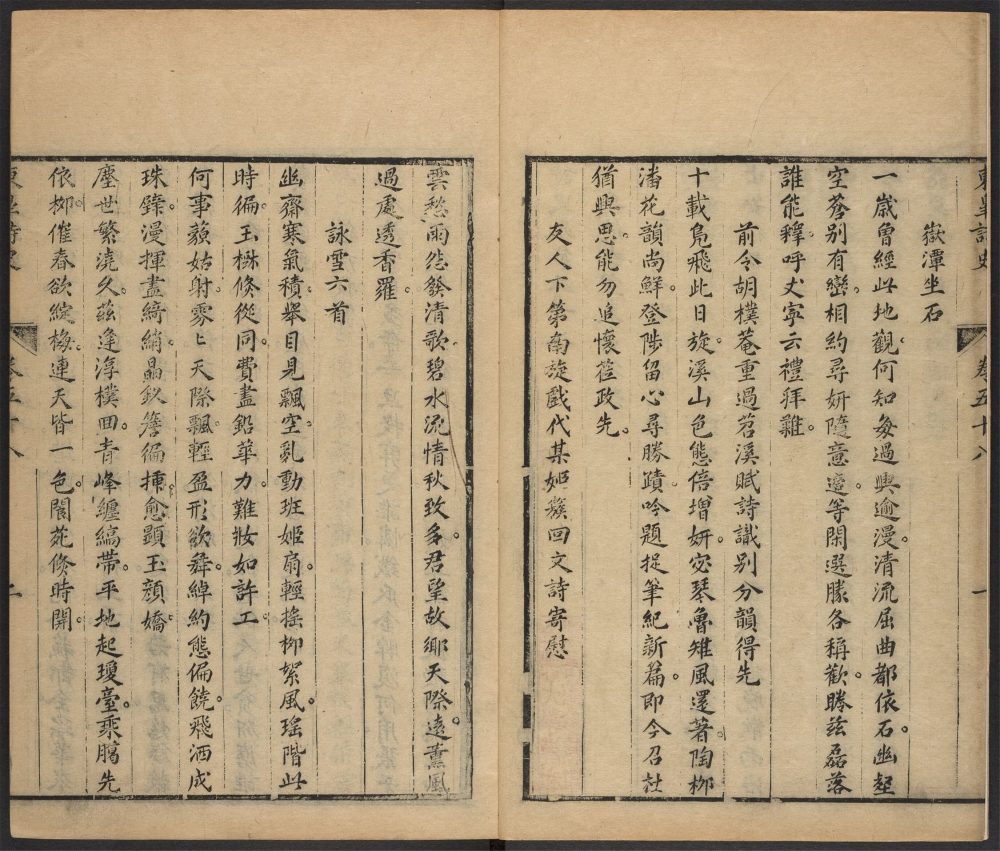 東皐詩史
卷五十八
一
嶽潭坐石
一歲曾經此地觀何知每過興逾漫清流屈曲都依石幽壑
空蒼別有巒相約尋妍隨意適等閑選勝各稱歡勝茲磊落
誰能釋呼丈寧云禮拜難
前令胡樸菴重過苕溪賦詩識別分韻得先
十載鳧飛此日旋溪山色態倍增妍宓琴魯雉風還著陶柳
潘花韻尚鮮登陟留心尋勝蹟吟題捉筆紀新篇即今召社
猶興思能勿追懷莅政先
友人下第南旋戲代某姬簇回文詩寄慰
雲愁雨怨發清歌碧水流情秋致多君望故鄉天際遠薰風
過處透香羅
詠雪六首
幽齋寒氣積舉目見飄空亂動班姬扇輕搖柳絮風瑤階此
時徧玉樹倏從同費盡鉛華力難妝如許工
何事藐姑射霏霏天際飄輕盈形欲舞綽約態偏饒飛洒成
珠錄漫揮盡綺綃晶釵簷徧插愈顯玉顏嬌
塵世繁澆久茲逢淳樸回青峰纏縞帶平地起瓊臺乘臘先
依柳催春欲綻梅連天皆一色閬苑倏時開